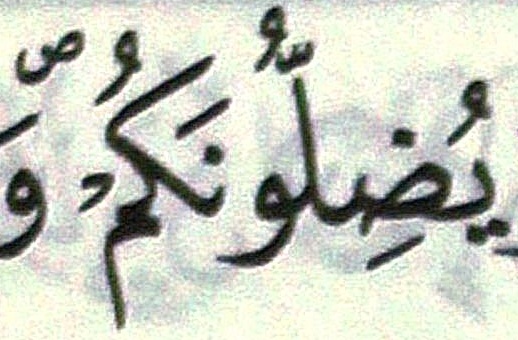 يُضِلُّونَكُمْ ۖ وَ